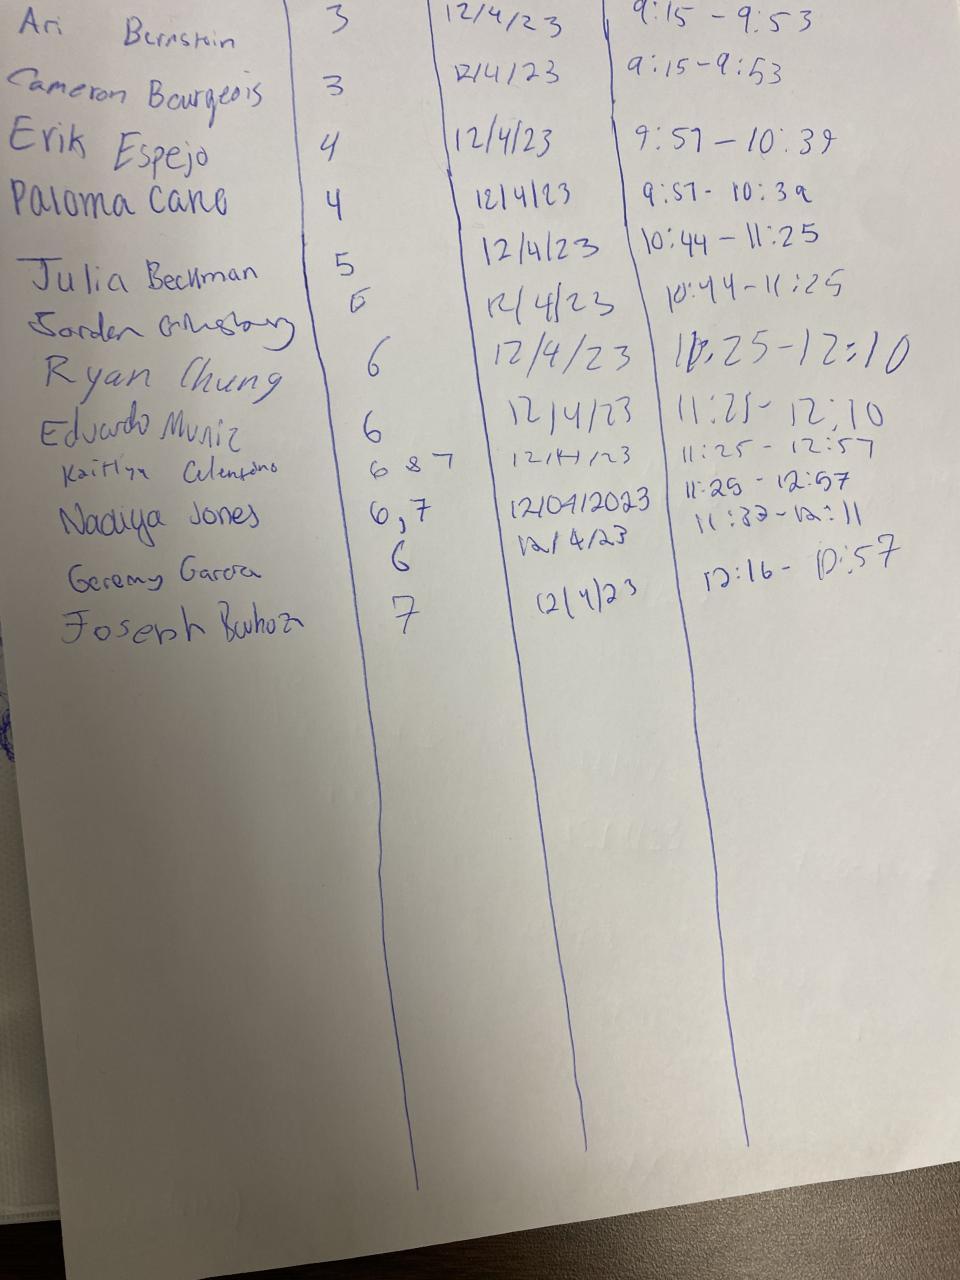 Ari Bernstein 3 12/4/23 9:15 - 9:53
Cameron Bourgeois 3 12/4/23 9:15-9:53
Erik Espejo 4 12/4/23 9:57 - 10:39
Paloma Cano 4 12/4/23 9:57- 10:39
Julia Beckman 5 12/4/23 10:44 - 11:25
5 12/4/23 10:44-11:25
Ryan Chung 6 12/4/23 11:25-12:10
Eduardo Muniz 6 12/4/23 11:25- 12:10
Kaitlyn 6 & 7 12/4/23 11:25 - 12:57
Nadiya Jones 6,7 12/04/2023 11:25 - 12:57
Geremy Garcia 6 12/4/23 12:11
Joseph 7 12/4/23 12:16 - 12:57